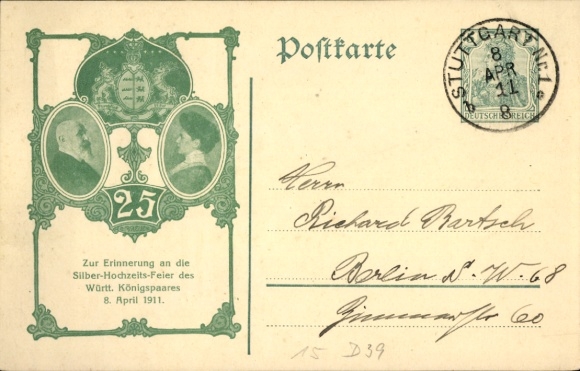 Postkarte
STUTTGART Nr. 1
8
APR
11
8
b
DEUTSCHES REICH
25
Zur Erinnerung an die
Silber-Hochzeits-Feier des
Württ. Königspaares
8. April 1911.
Herrn
Richard Bartsch
Berlin S. W. 68
Zimmerstr 60
15 D39